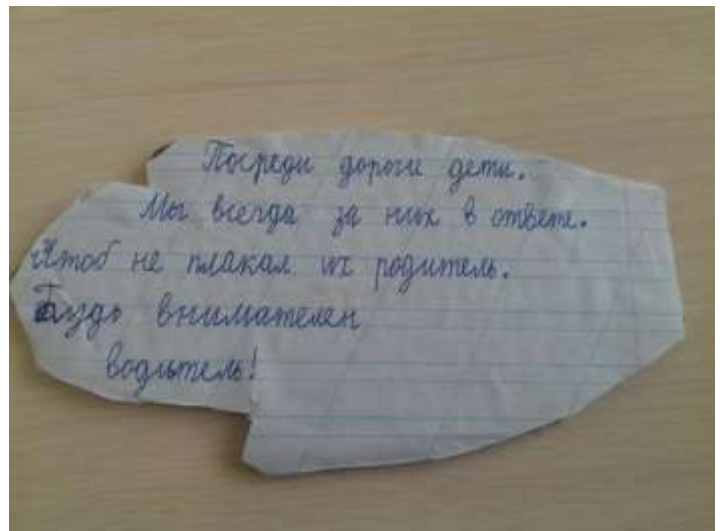 Посреди дороги дети.
Мы всегда за них в ответе.
Чтоб не плакал их родитель.
Буздь внимателен
водитель!